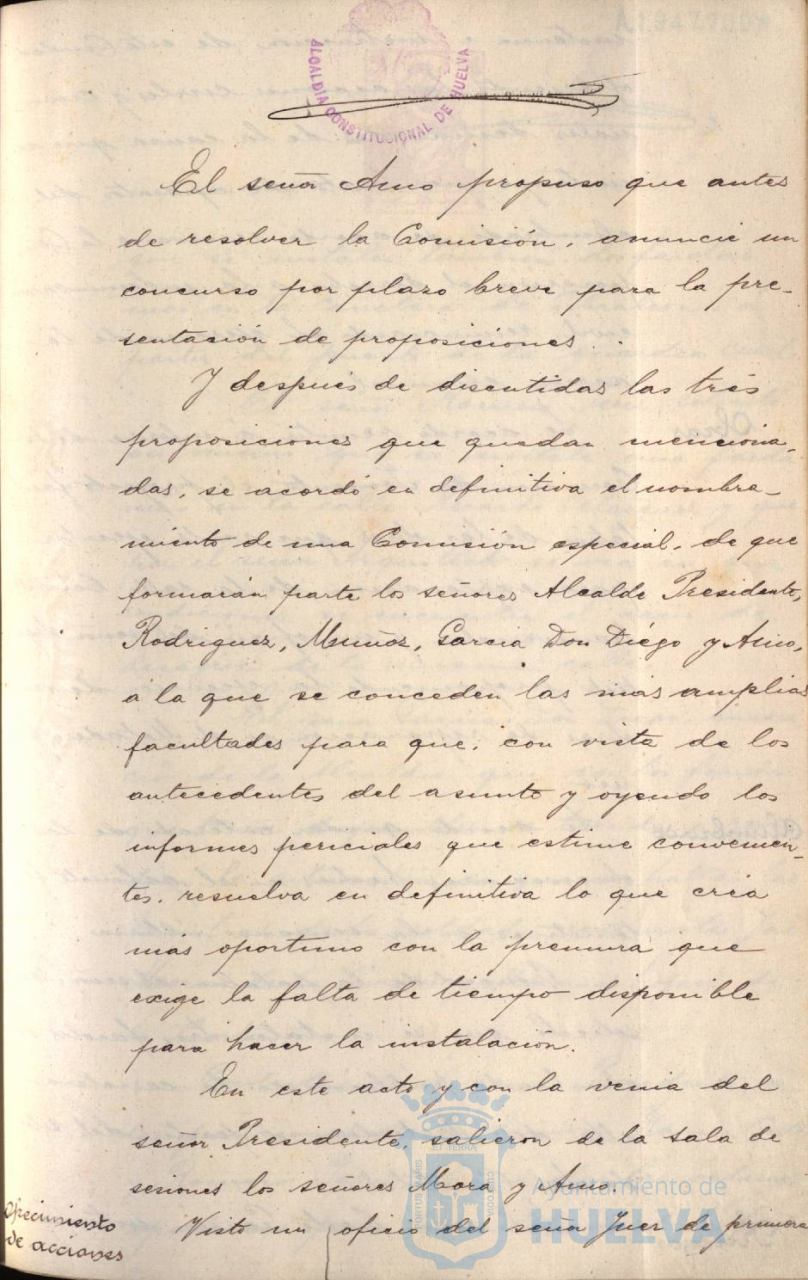 ALCALDIA CONSTITUCIONAL DE HUELVA
El señor Amo propuso que antes
de resolver la Comisión, anuncie un
concurso por plazo breve para la pre-
sentación de proposiciones.
Y después de discutidas las tres
proposiciones que quedan menciona-
das, se acordó en definitiva el nombra-
miento de una Comisión especial, de que
formarán parte los señores Alcalde Presidente,
Rodriguez, Muñoz, Garcia Don Diégo y Amo,
á la que se conceden las más amplias
facultades para que, con vista de los
antecedentes del asunto y oyendo los
informes periciales que estime convenien-
tes, resuelva en definitiva lo que créa
más oportuno con la premura que
exige la falta de tiempo disponible
para hacer la instalación.
En este acto y con la venia del
señor Presidente, salieron de la sala de
sesiones los señores Mora y Amo.
Ofrecimiento
de acciones
Visto un oficio del señor Juez de primera
Ayuntamiento de
HUELVA